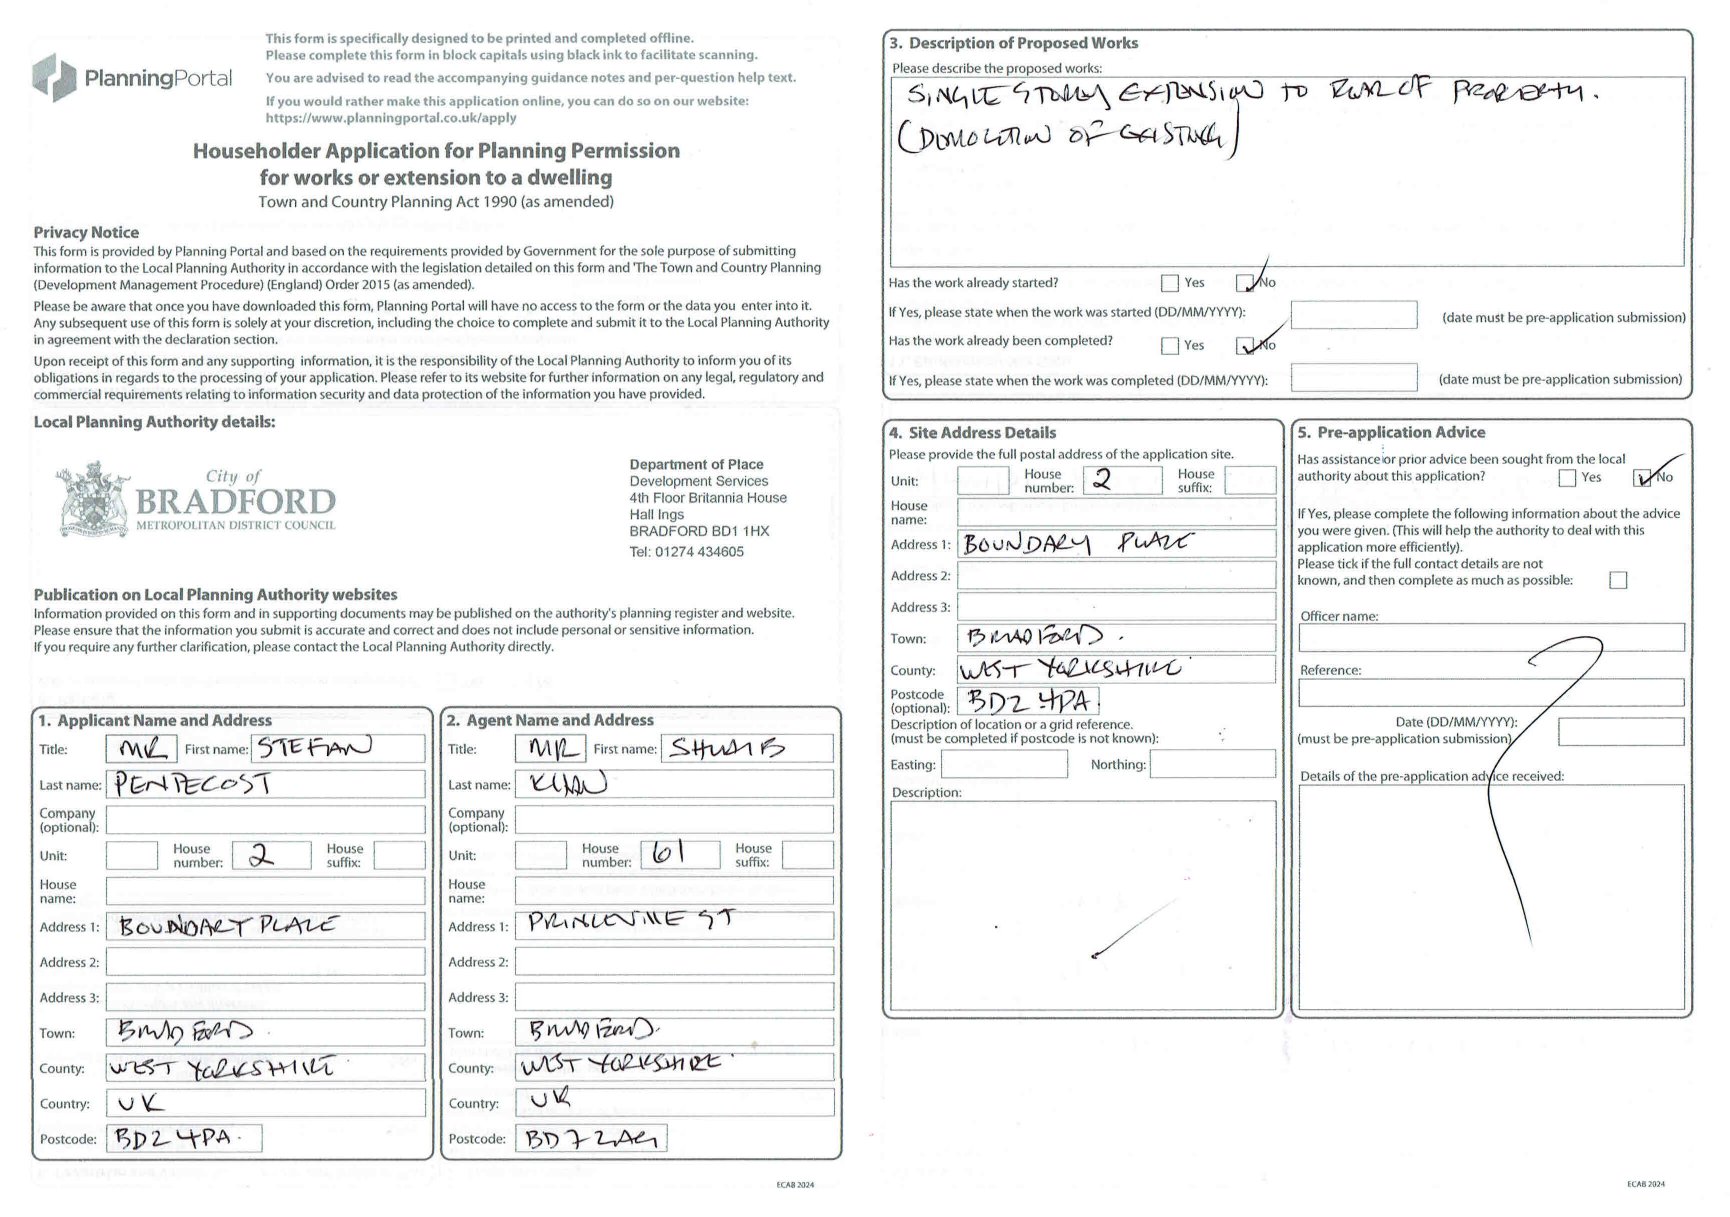 This form is specifically designed to be printed and completed offline.
Please complete this form in block capitals using black ink to facilitate scanning.
You are advised to read the accompanying guidance notes and per-question help text.
If you would rather make this application online, you can do so on our website:
https://www.planningportal.co.uk/apply
PlanningPortal
Householder Application for Planning Permission
for works or extension to a dwelling
Town and Country Planning Act 1990 (as amended)
Privacy Notice
This form is provided by Planning Portal and based on the requirements provided by Government for the sole purpose of submitting
information to the Local Planning Authority in accordance with the legislation detailed on this form and 'The Town and Country Planning
(Development Management Procedure) (England) Order 2015 (as amended).
Please be aware that once you have downloaded this form, Planning Portal will have no access to the form or the data you enter into it.
Any subsequent use of this form is solely at your discretion, including the choice to complete and submit it to the Local Planning Authority
in agreement with the declaration section.
Upon receipt of this form and any supporting information, it is the responsibility of the Local Planning Authority to inform you of its
obligations in regards to the processing of your application. Please refer to its website for further information on any legal, regulatory and
commercial requirements relating to information security and data protection of the information you have provided.
Local Planning Authority details:
City of
BRADFORD
METROPOLITAN DISTRICT COUNCIL
Department of Place
Development Services
4th Floor Britannia House
Hall Ings
BRADFORD BD1 1HX
Tel: 01274 434605
Publication on Local Planning Authority websites
Information provided on this form and in supporting documents may be published on the authority's planning register and website.
Please ensure that the information you submit is accurate and correct and does not include personal or sensitive information.
If you require any further clarification, please contact the Local Planning Authority directly.
1. Applicant Name and Address
Title: MR First name: STEFAN
Last name: PENTECOST
Company
(optional):
Unit: House number: 2 House suffix:
House
name:
Address 1: BOUNDARY PLACE
Address 2:
Address 3:
Town: BRADFORD.
County: WEST YORKSHIRE
Country: UK
Postcode: BD2 4PA.
2. Agent Name and Address
Title: MR First name: SHUAIB
Last name: KHAN
Company
(optional):
Unit: House number: 61 House suffix:
House
name:
Address 1: PRINCEVILLE ST
Address 2:
Address 3:
Town: BRADFORD.
County: WEST YORKSHIRE
Country: UK
Postcode: BD7 2AG
ECAB 2024
3. Description of Proposed Works
Please describe the proposed works:
SINGLE STOREY EXTENSION TO REAR OF PROPERTY.
(DEMOLITION OF EXISTING)
Has the work already started? Yes No
If Yes, please state when the work was started (DD/MM/YYYY): (date must be pre-application submission)
Has the work already been completed? Yes No
If Yes, please state when the work was completed (DD/MM/YYYY): (date must be pre-application submission)
4. Site Address Details
Please provide the full postal address of the application site.
Unit: House number: 2 House suffix:
House
name:
Address 1: BOUNDARY PLACE
Address 2:
Address 3:
Town: BRADFORD.
County: WEST YORKSHIRE
Postcode
(optional): BD2 4PA
Description of location or a grid reference.
(must be completed if postcode is not known):
Easting: Northing:
Description:
5. Pre-application Advice
Has assistance or prior advice been sought from the local
authority about this application? Yes No
If Yes, please complete the following information about the advice
you were given. (This will help the authority to deal with this
application more efficiently).
Please tick if the full contact details are not
known, and then complete as much as possible:
Officer name:
Reference:
Date (DD/MM/YYYY):
(must be pre-application submission)
Details of the pre-application advice received:
ECAB 2024